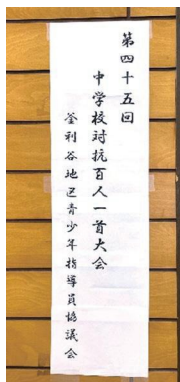 第四十五回
中学校対抗百人一首大会
釜利谷地区青少年指導員協議会